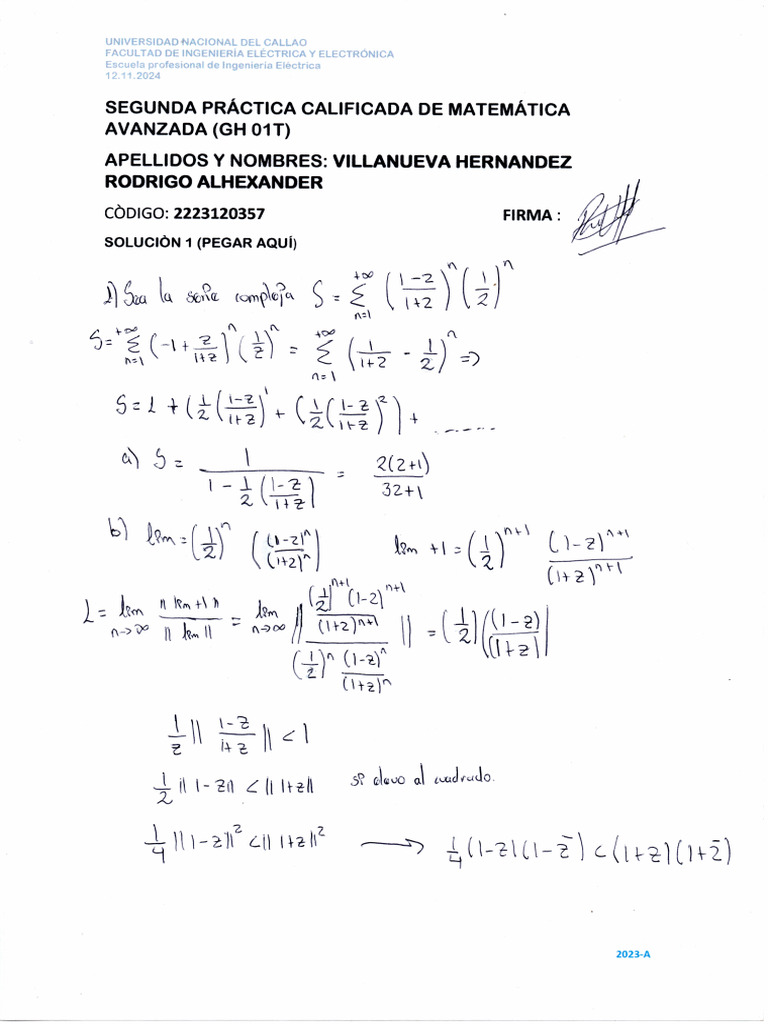 UNIVERSIDAD NACIONAL DEL CALLAO
FACULTAD DE INGENIERÍA ELÉCTRICA Y ELECTRÓNICA
Escuela profesional de Ingeniería Eléctrica
12.11.2024
SEGUNDA PRÁCTICA CALIFICADA DE MATEMÁTICA
AVANZADA (GH 01T)
APELLIDOS Y NOMBRES: VILLANUEVA HERNANDEZ
RODRIGO ALHEXANDER
CÒDIGO: 2223120357 FIRMA :
SOLUCIÒN 1 (PEGAR AQUÍ)
1) Sea la serie compleja S = +∞ Σ n=1 ((1-z)/(1+z))^n (1/2)^n
S = +∞ Σ n=1 (-1 + z/(1+z))^n (1/z)^n = +∞ Σ n=1 (1/(1+z) - 1/2)^n =>
S = 1 + (1/2 ((1-z)/(1+z))^1 + (1/2 ((1-z)/(1+z))^2) + ......
a) S = 1/(1 - 1/2 ((1-z)/(1+z))) = 2(z+1)/(3z+1)
b) lem = (1/2)^n ((1-z)^n/(1+z)^n) lem +1 = (1/2)^(n+1) (1-z)^(n+1)/(1+z)^(n+1)
L = lem n→∞ || lem+1 ||/|| lem || = lem n→∞ || ((1/2)^(n+1) (1-z)^(n+1)/(1+z)^(n+1))/((1/2)^n (1-z)^n/(1+z)^n) || = (1/2) |(1-z)/(1+z)|
1/z || (1-z)/(1+z) || < 1
1/2 || 1-z || < || 1+z || si elevo al cuadrado.
1/4 || 1-z ||² < || 1+z ||² → 1/4 (1-z)(1-z̄) < (1+z)(1+z̄)
2023-A